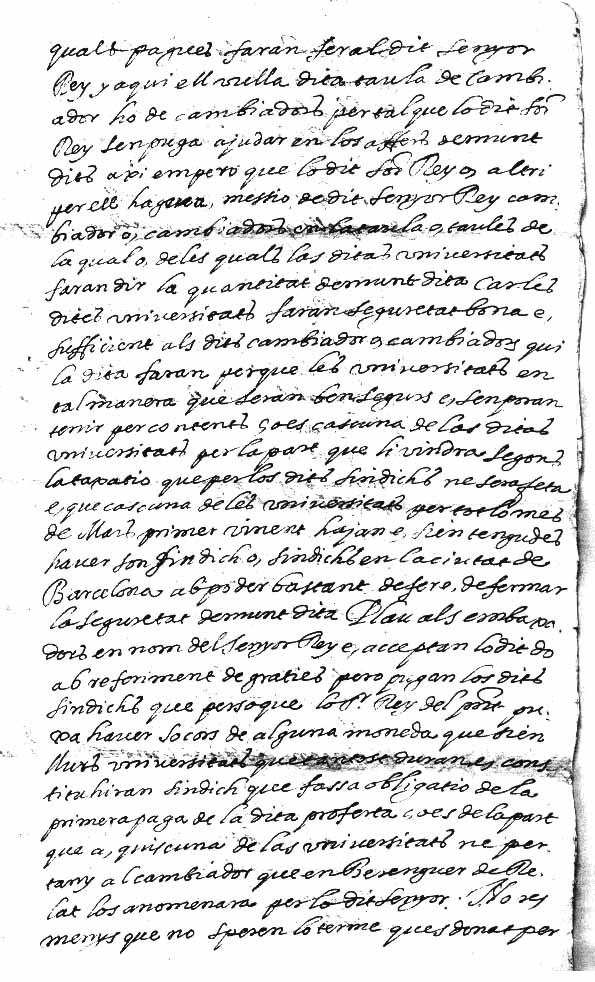 quals pagues faran fer al dit senyor
Rey y aqui ell vulla dita taula de Cambi-
ador ho de cambiadors per tal que lo dit Sor
Rey sen puga ajudar en los affers demunt
dits axi empero que lo dit Sor Rey o, altri
per ell haguea, mestio, de dit senyor Rey cam-
biador o, cambiadors en la taula o, taules de
la qual o, de les quals las ditas universitats
faran dir la quantitat demunt dita Car les
dites universitats faran seguretat bona e,
sufficient als dits cambiador o, cambiadors qui
la dita faran perque les universitats en
tal manera que seran ben segurs e, sen poran
tenir per contents ço es cascuna de las ditas
universitats per la part que li vindra segons
la tatxatio que per los dits sindichs ne sera feta
e, que cascuna de les universitats per tot lo mes
de Mars primer vinent hajan e, sien tengudes
haver son sindich o, sindichs en la ciutat de
Barcelona ab poder bastant de fere, de fermar
la seguretat demunt dita Plau als embaxa-
dors en nom del senyor Rey e, acceptan lo dit do
ab referiment de graties pero pugan los dits
sindichs que perso que lo Sr. Rey del pnt pu-
xa haver socors de alguna moneda que sien
llurs universitats que tantost duran e, cons
tituhiran sindich que fassa obligatio de la
primera paga de la dita proferta ço es de la part
que a, quiscuna de las universitats ne per-
tany al cambiador que en Berenguer de Re-
lat los anomenara per lo dit senyor. No res
menys que no speren lo terme ques donat per